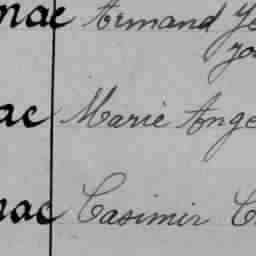 nac Armand Je
ac Marie Ange
nac Casimir C